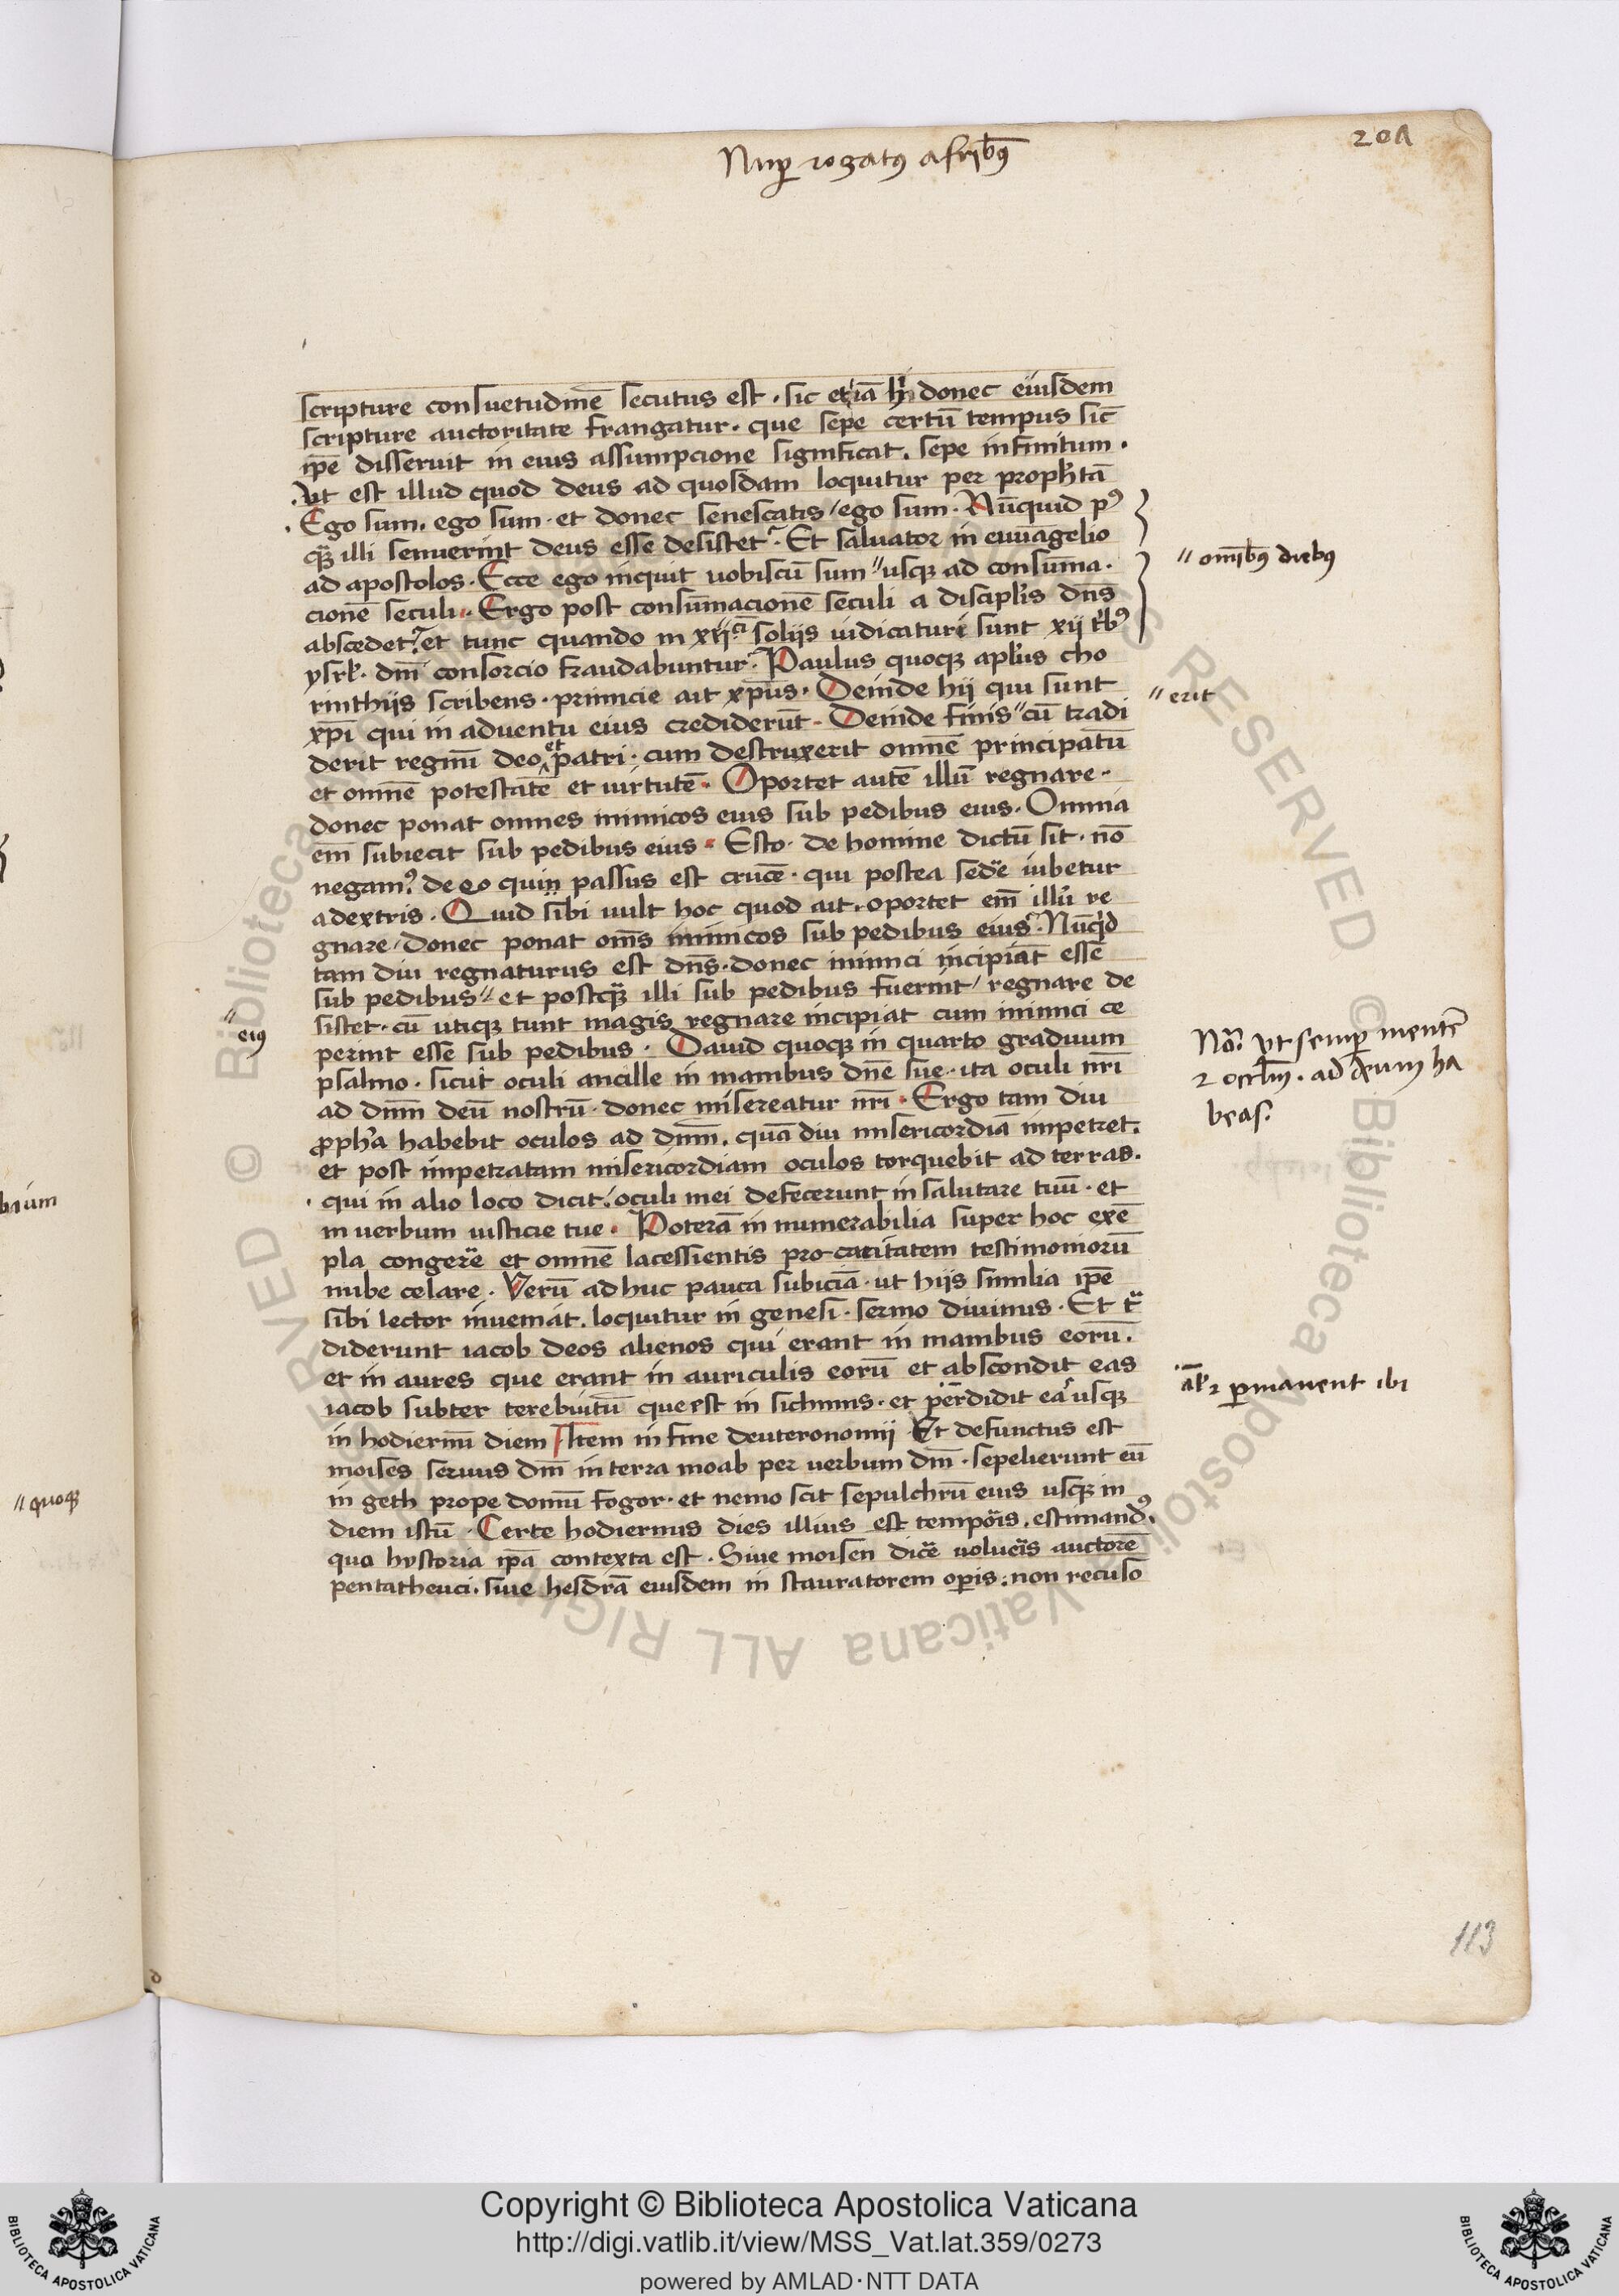 Nuꝑ rogatꝰ a frib̄ꝰ
20A
scripture consuetudinē secutus est · sic etiā donec eiusdem
scripture auctoritate frangatur · que sepe certū tempus sic̄
ip̄e disseruit in eius assumpcione significat . sepe infinitum .
. ut est illud quod deus ad quosdam loquitur per prophetā
. Ego sum . ego sum · et donec senescatis / ego sum · Nūquid pꝰ
qꝫ illi senuerint deus esse desistet · Et saluator in euuāgelio
ad apostolos · Ecce ego inquit uobiscū sum " usqꝫ ad consūma .
cionē seculi · Ergo post consūmacionē seculi a discipl̄is dn̄s
" om̄ib̄ꝰ diebꝰ
abscedet · et tunc quando in xij soliis iudicaturi sunt xij t'bꝰ
ysrl̄ · dn̄i consorcio fraudabuntur · Paulus quoqꝫ apl̄us cho
rinthiis scribens · primicie ait xp̄us · Deinde hij qui sunt
" erit
xp̄i qui in aduentu eius crediderūt · Deinde finis " cū tradi
derit regnū deo et patri · cum destruxerit omnē principatū
et omnē potestatē et uirtutē · Oportet autē illū regnare ·
donec ponat omnes inimicos eius sub pedibus eius · Omnia
em̄ subiecit sub pedibus eius · Esto · de homine dictū sit · nō
negamꝰ de eo quin passus est crucē · qui postea sedē iubetur
a dextris · Quid sibi uult hoc quod ait · oportet em̄ illū re
gnare / donec ponat om̄s inimicos sub pedibus eius · Nūq'd
tam diu regnaturus est dn̄s · donec inimici incipiāt esse
sub pedibus " et postqꝫ illi sub pedibus fuerint / regnare de
" eiꝰ
sistet · cū utiqꝫ tunt magis regnare incipiat cum inimici ce
perint esse sub pedibus · Dauid quoqꝫ in quarto graduum
Nō · vt semꝑ mentē
psalmo · sicut oculi ancille in manibus dn̄e sue · ita oculi nr̄i
ad dn̄m deū nostrū · donec misereatur nr̄i · Ergo tam diu
beas .
ꝓph'a habebit oculos ad dn̄m . quā diu misericordiā impetret .
et post impetratam misericordiam oculos torquebit ad terras .
. qui in alio loco dicit · oculi mei defecerunt in salutare tuū · et
in uerbum iusticie tue · Poterā in numerabilia super hoc exē
pla congerē et omnē lacessientis procacitatem testimoniorū
nube celare · Verū ad huc pauca subiciā · ut hijs similia ip̄e
sibi lector inueniat . loquitur in genesi · sermo diuinus · Et t
diderunt iacob deos alienos qui erant in manibus eorū .
et in aures que erant in auriculis eorū et abscondit eas
iacob subter terebintū que est in sichimis · et perdidit eā usqꝫ
ꝑmanent ibi
in hodiernū diem Item in fine deuteronomii Et defunctus est
moises seruus dn̄i in terra moab per uerbum dn̄i · sepelierunt eū
in geth prope domū fogor · et nemo scit sepulchrū eius usqꝫ in
" quoqꝫ
diem istū · Certe hodiernus dies illius est tempōis . estimandꝰ .
quo hystoria ip̄a contexta est · Siue moisen dicē uolueīs auctorē
pentatheuci . siue hesdrā eiusdem in stauratorem oꝑis : non recuso
113
Copyright © Biblioteca Apostolica Vaticana
http://digi.vatlib.it/view/MSS_Vat.lat.359/0273
powered by AMLAD·NTT DATA